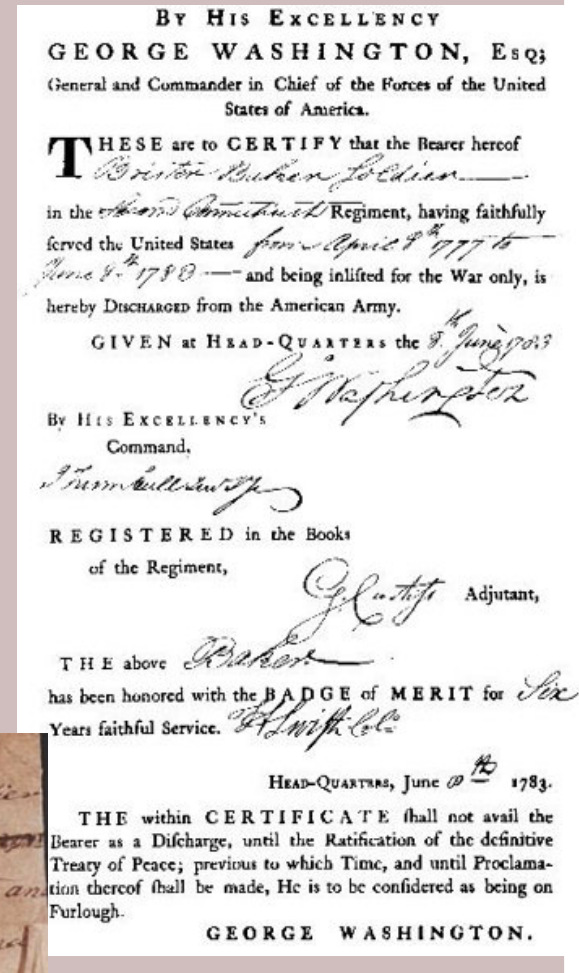 BY HIS EXCELLENCY
GEORGE WASHINGTON, ESQ;
General and Commander in Chief of the Forces of the United
States of America.
THESE are to CERTIFY that the Bearer hereof
Bristor Baker Soldier
in the Second Connecticut Regiment, having faithfully
ſerved the United States from April 8th 1777 to
June 8th 1783 — and being inliſted for the War only, is
hereby DISCHARGED from the American Army.
GIVEN at HEAD-QUARTERS the 8th June 1783
G Washington
By HIS EXCELLENCY'S
Command,
J Trumbull Junr Sy
REGISTERED in the Books
of the Regiment,
G. Curtiss Adjutant,
THE above Baker
has been honored with the BADGE of MERIT for Six
Years faithful Service. H Swift Col.
HEAD-QUARTERS, June 8th 1783.
THE within CERTIFICATE ſhall not avail the
Bearer as a Diſcharge, until the Ratification of the definitive
Treaty of Peace; previous to which Time, and until Proclama-
tion thereof ſhall be made, He is to be conſidered as being on
Furlough.
GEORGE WASHINGTON.